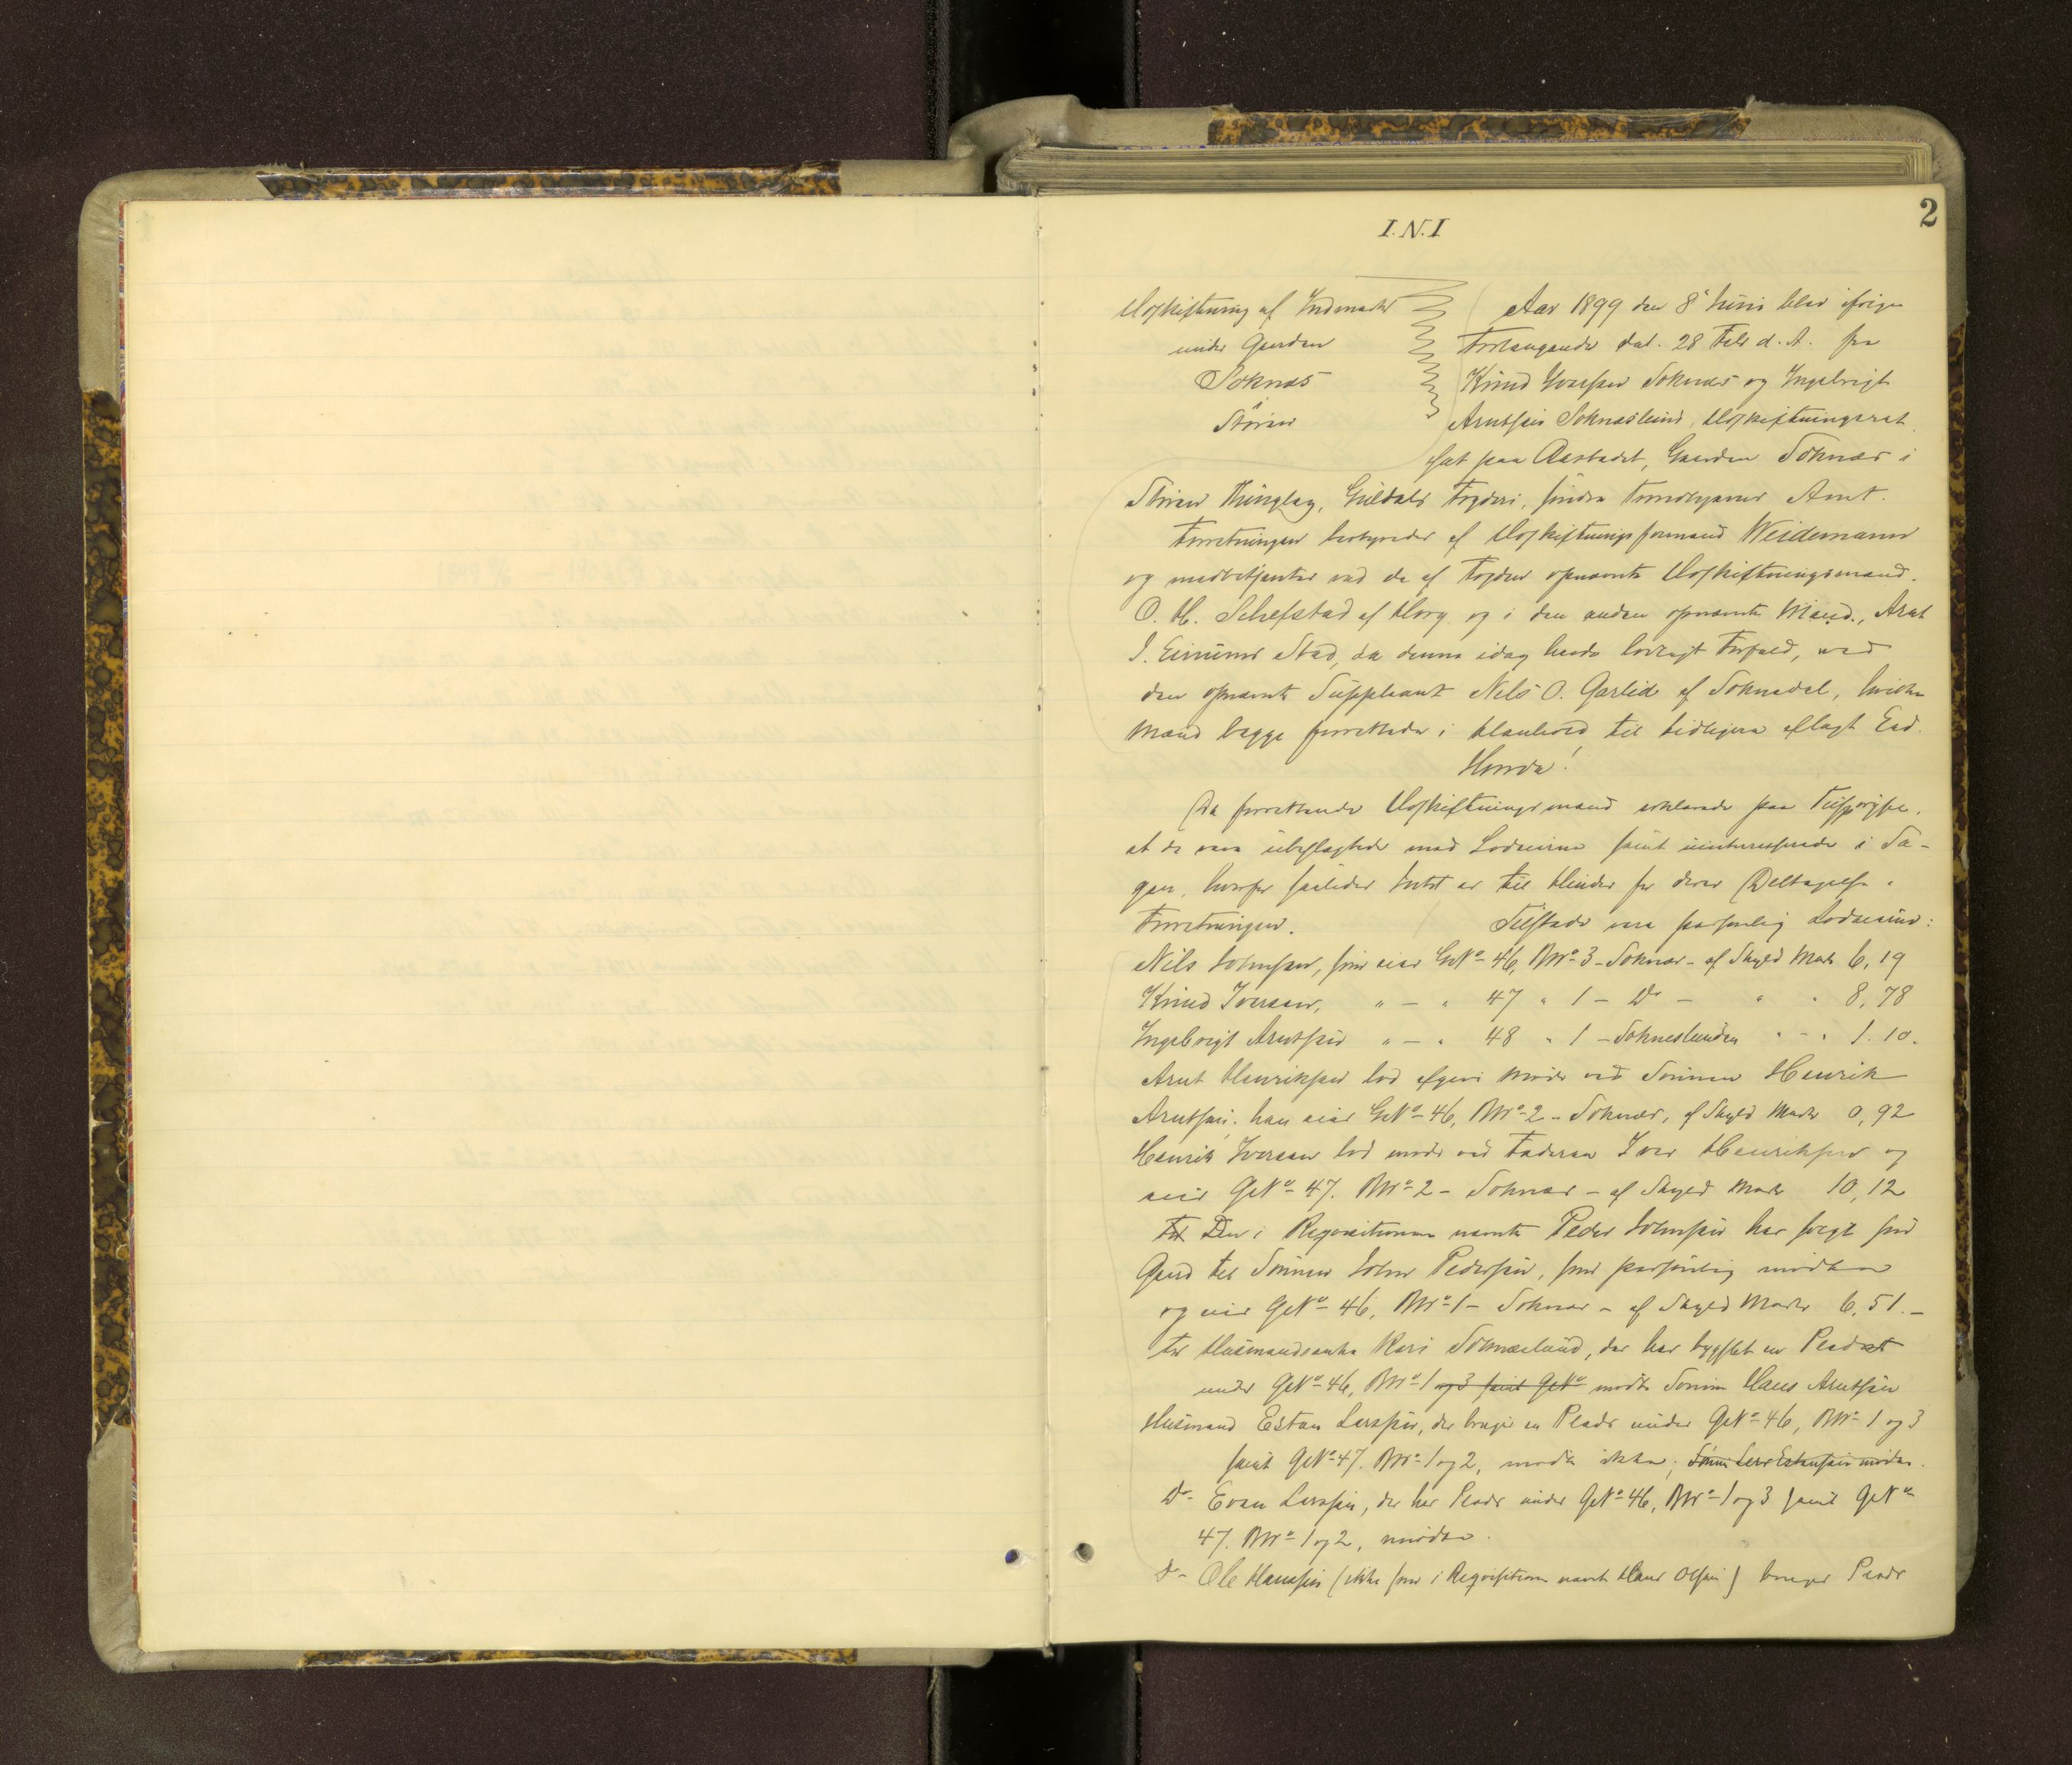 2
I.N.I
Udskiftning af Indmark
under Gaarden
Soknæs
i
Støren
Aar 1899 den 8' Juni blev ifølge
Forlangende dat. 28 Feb d. A. fra
Knud Iversen Soknæs og Ingebrigt
Arntsen Soknæslund, Udskiftningsret
sat paa Aastedet, Gaarden Soknæs i
Støren Thinglag, Guldals Fogderi, søndre Trondhjems Amt.
Forretningen bestyredes af Udskiftningsformand Weidemann
og medbetjentes ved de af Fogden opnævnte Udskiftningsmænd.
O. H. af Horg og i den anden opnævnte Mand., Arnt
J. Sted, da denne idag havde lovligt Forfald, ved
den opnævnte Suppleant Nils O. Garlid af Soknedal, hvilke
Mænd begge forrettede i Henhold til tidligere aflagt Ed.
De forrettende Udskiftningsmænd erklærede paa
at de vare ubeslægtede med Lodseierne samt uinteresserede i Sa-
gen, hvorfor saaledes Intet er til Hinder for deres Deltagelse i
Forretningen. Tilstede vare personlig Lodseierne:
Nils Johnsen, som eier GNo 46, BNo 3 - Soknæs - af Skyld Mark 6,19
Knud Iversen, " - " 47 " 1 - Do - " " 8,78
Ingebrigt Arntsen " - " 48 " 1 - Sokneslunden " - " 1.10.
Arnt Henriksen lod afgive Møde ved Sønnen Henrik
Arntsen; han eier GNo 46, BNo 2 - Soknæs, af Skyld Mark 0,92
Henrik Iversen lod møde ved Faderen Iver Henriksen og
eier GNo 47. BNo 2 - Soknæs - af Skyld Mark 10,12
Den i Requisitionen nævnte Peder Johnsen har solgt sin
Gaard til Sønnen John Pedersen, som personlig mødte
og eier GNo 46, BNo 1 - Soknæs - af Skyld Mark 6,51.-
For Husmandsenke Kari Soknæslund, der har bygslet en Plads
under GNo 46, BNo 1 og 3 samt GNo mødte Sønnen Hans Arntsen
Husmand Estan Larssen, der bruger en Plads under GNo 46, BNo 1 og 3
samt GNo 47. BNo 1 og 2, mødte ikke; Sønnen Lars Estensen mødte.
Do Even Larssen, der har Plads under GNo 46, BNo 1 og 3 samt GNo
47. BNo 1 og 2, mødte.
Do Ole Hanssen (ikke som i Requisitionen nævnt Hans Olsen) bruger Plads